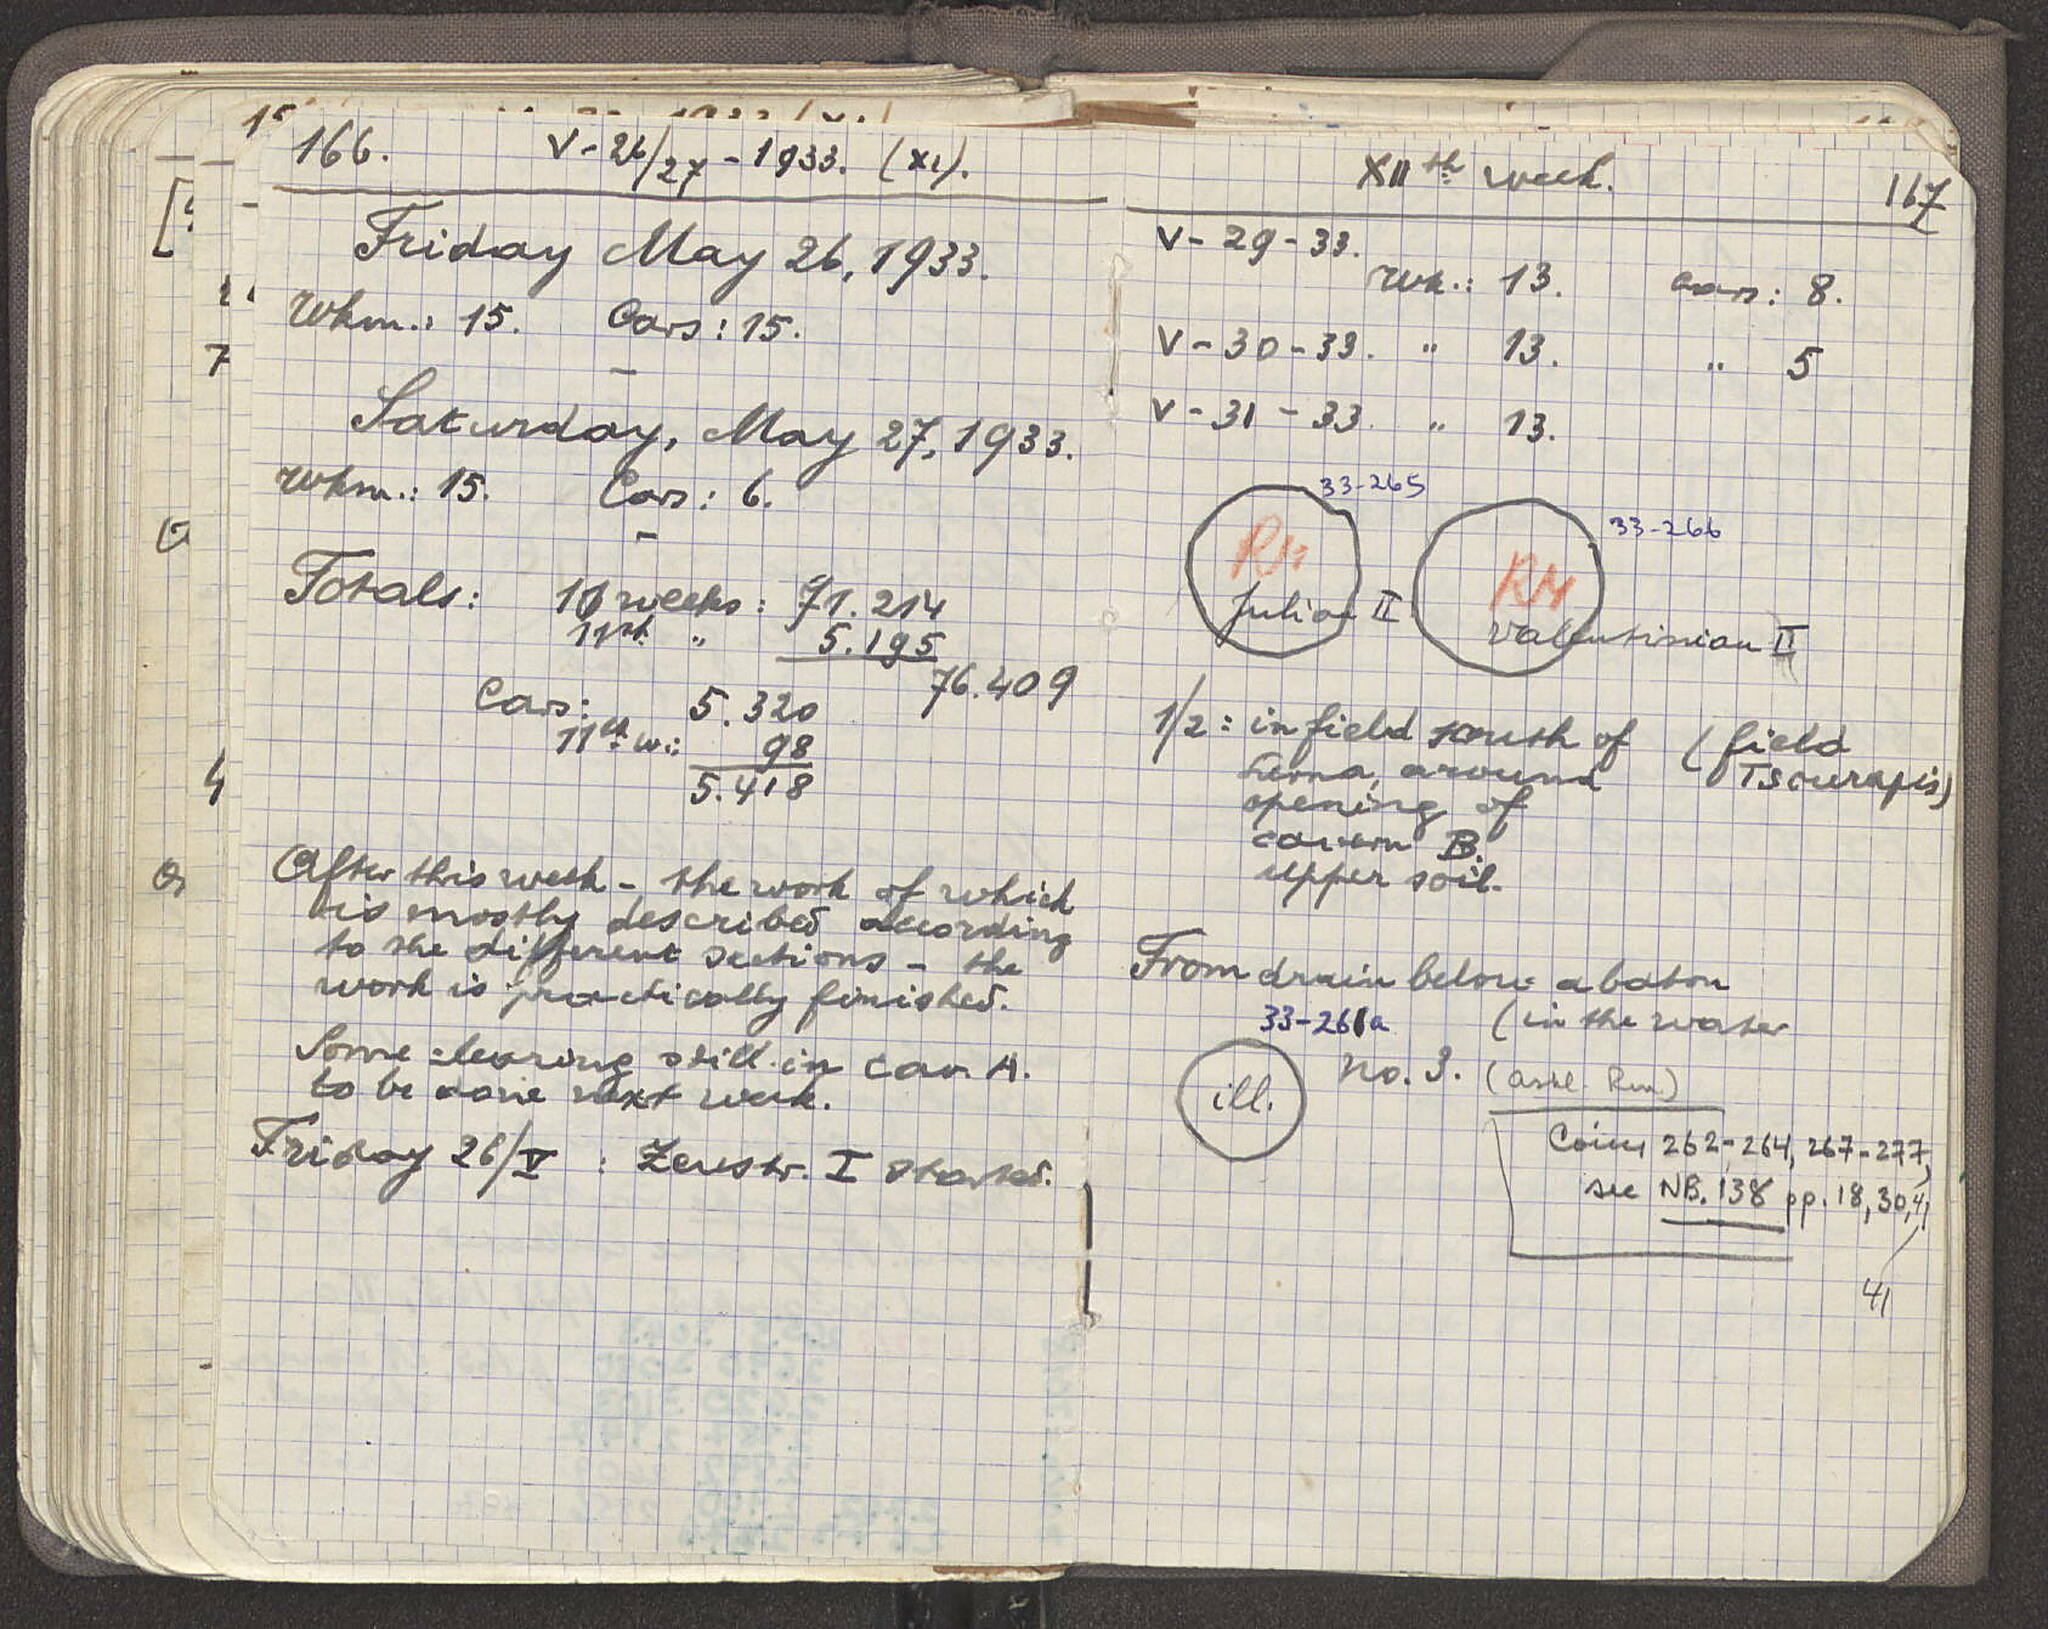 166. V-26/27-1933. (XI).
Friday May 26, 1933.
Wkm.: 15. Cars: 15.
Saturday, May 27, 1933.
Wkm.: 15. Cars: 6.
Totals: 10 weeks: 71.214
11th. " 5.195
76.409
Cars: 5.320
11th w.: 98
5.418
After this week - the work of which
is mostly described according
to the different sections - the
work is practically finished.
Some clearing still in cav. A.
to be done next week.
Friday 26/V : Zeustr. I started.
XIIth week. 167
V-29-33.
Wk.: 13. Cars: 8.
V-30-33. " 13. " 5
V-31-33. " 13.
33-265
33-266
RM
Julian II
RM
Valentinian II
1/2: in field south of (field
Lerna, around Tsourapis)
opening of
cavern B.
upper soil.
From drain below abaton
(in the water
33-261a
ill. No. 3. (Rm)
Coins 262-264, 267-277,
see NB. 138 pp. 18, 30, 41
41